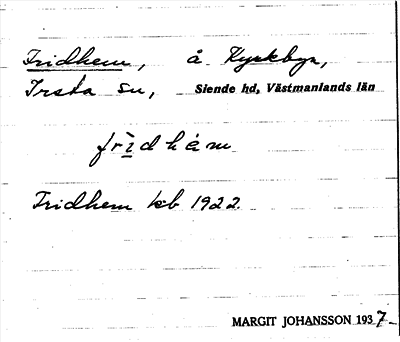 Fridhem, å Kyrkbyn,
Irsta sn, Siende hd, Västmanlands län
frìdhèm
Fridhem kb 1922.
MARGIT JOHANSSON 1937